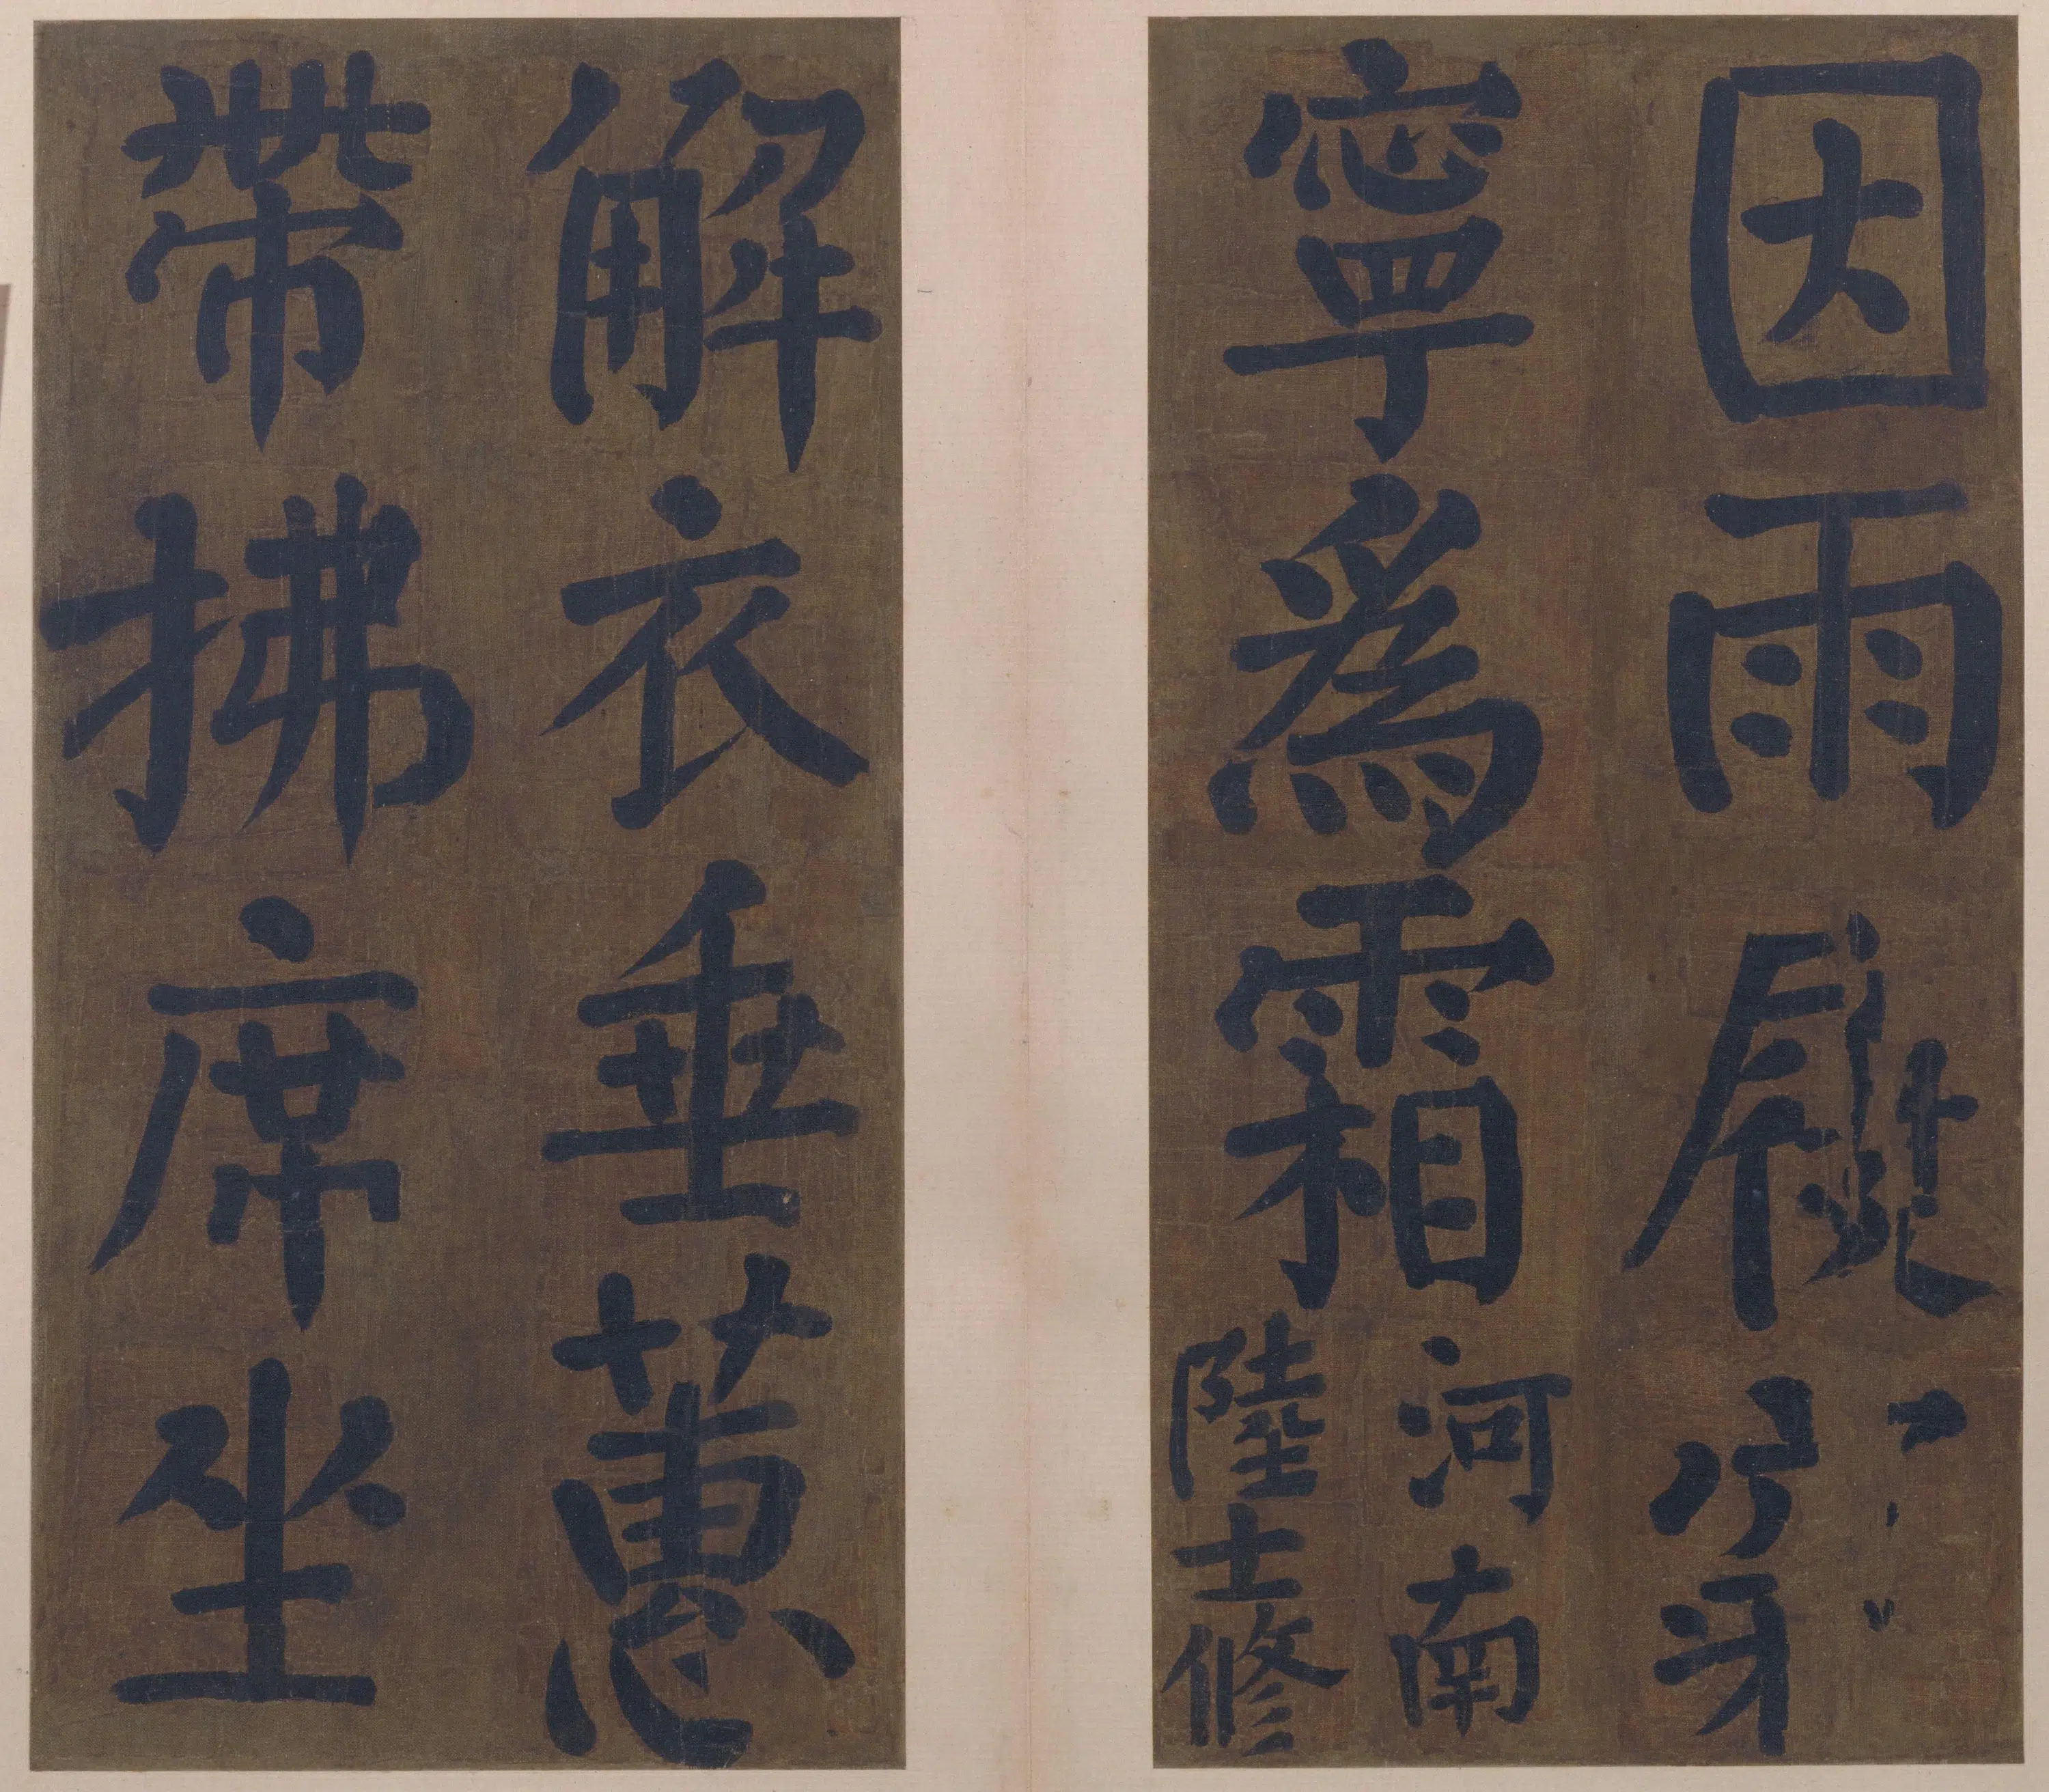 因雨穿
寧爲霜
河南
陸士修
解衣垂蕙
帶拂席坐